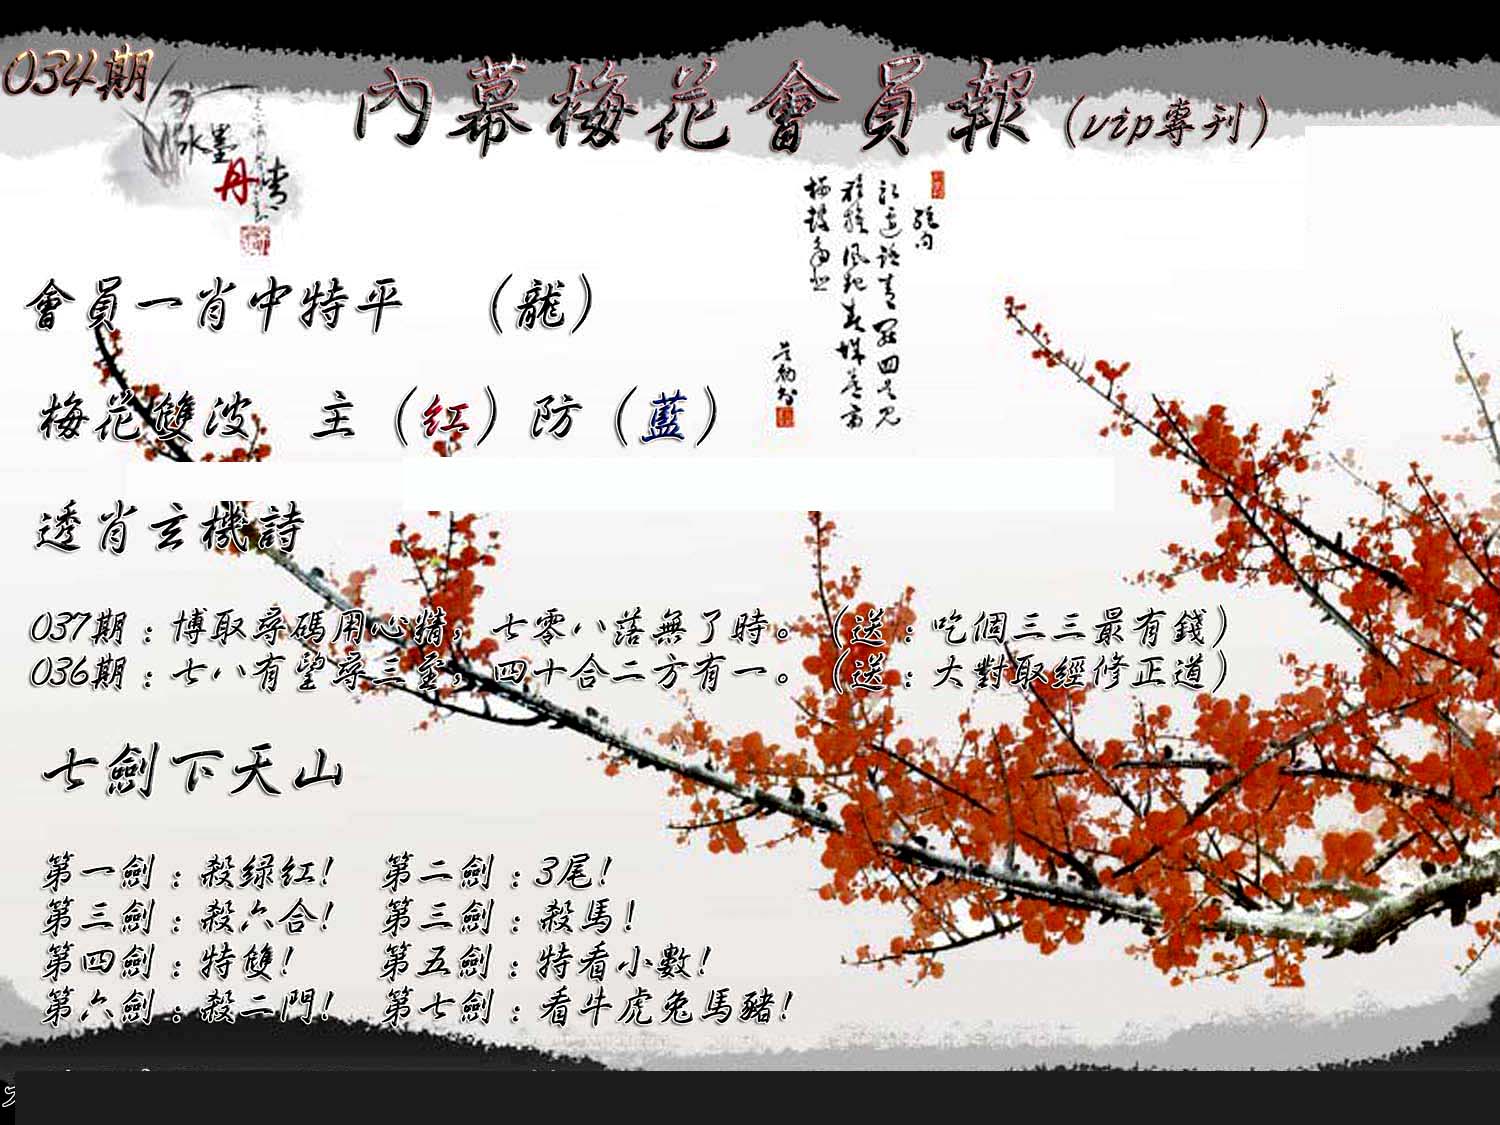 034期
內幕梅花會員報(vip專刊)
水墨
丹青
會員一肖中特平 (龍)
梅花雙波 主(紅)防(藍)
透肖玄機詩
037期:博取尋碼用心精,七零八落無了時。(送:吃個三三最有錢)
036期:七八有望尋三至,四十合二方有一。(送:大對取經修正道)
七劍下天山
第一劍:殺绿红! 第二劍:3尾!
第三劍:殺六合! 第三劍:殺馬!
第四劍:特雙! 第五劍:特看小數!
第六劍:殺二門! 第七劍:看牛虎兔馬豬!